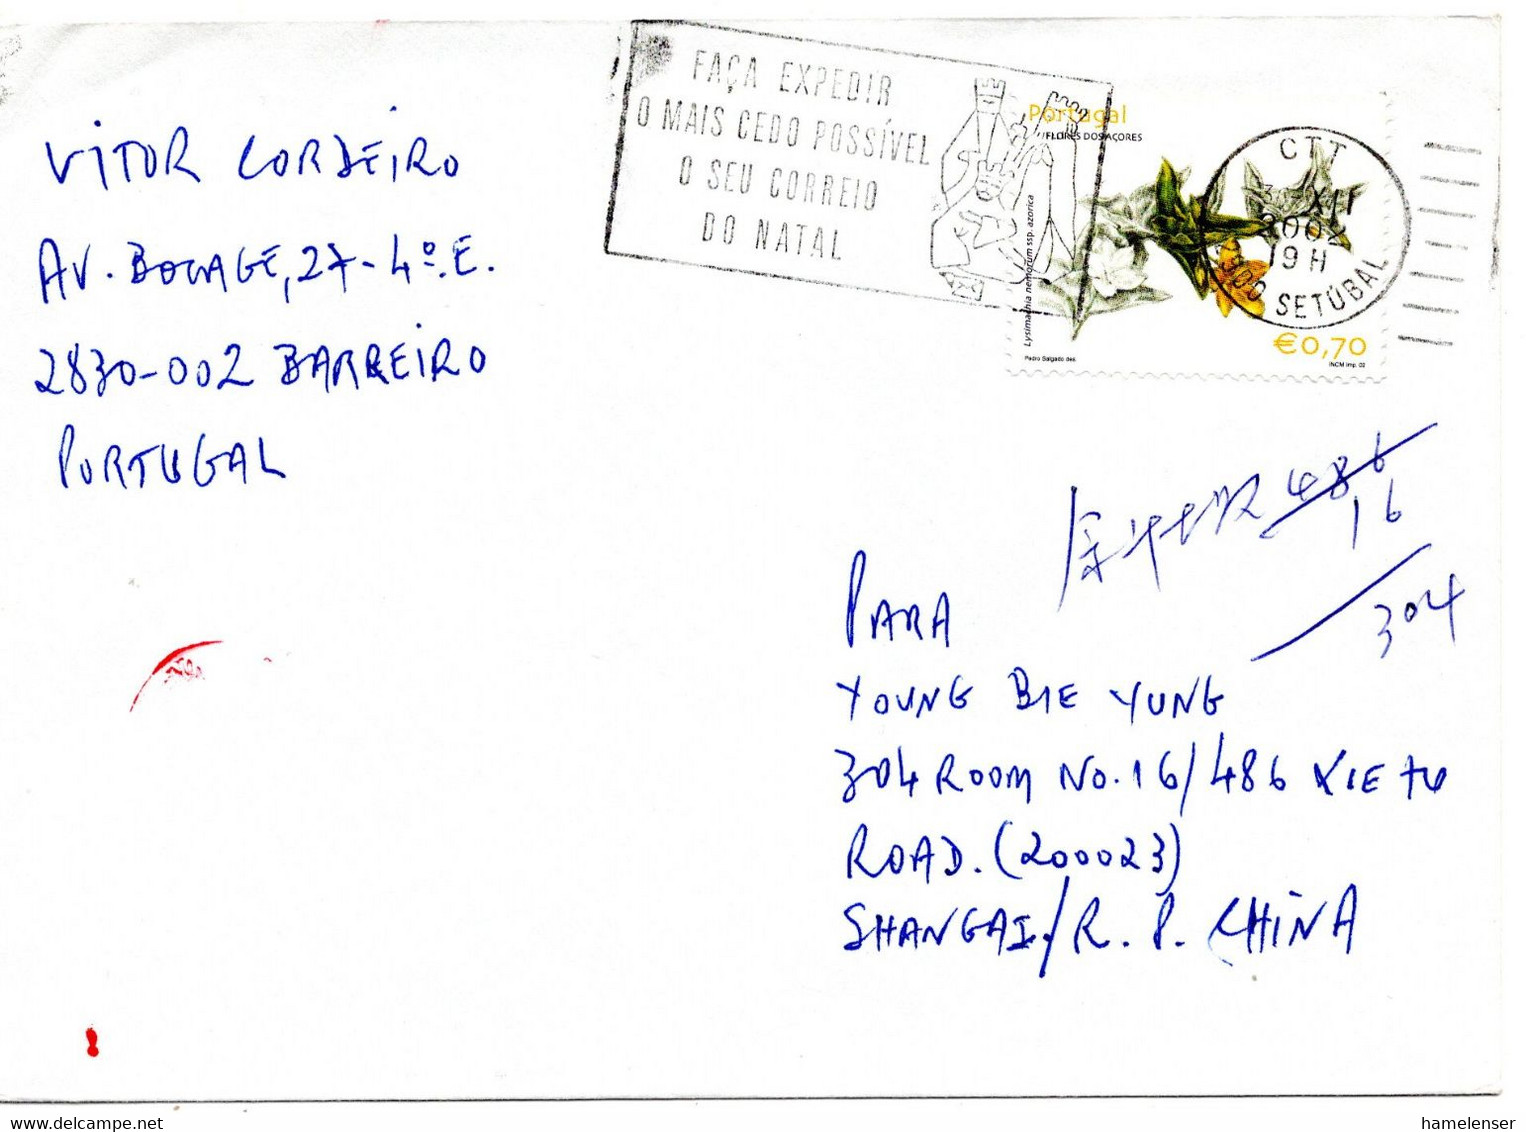 VITOR CORDEIRO
AV. BOCAGE, 27-4º.E.
2830-002 BARREIRO
PORTUGAL
FAÇA EXPEDIR
O MAIS CEDO POSSÍVEL
O SEU CORREIO
DO NATAL
Portugal
FLORES DOS AÇORES
Lysimachia nemorum ssp. azorica
CTT
XII
2002
19H
SETÚBAL
€0,70
Pedro Salgado des.
INCM imp. 02
486
16
304
PARA
YOUNG BIE YUNG
304 ROOM NO. 16/486 XIE TU
ROAD. (200023)
SHANGAI./R. P. CHINA
www.delcampe.net
hamelenser